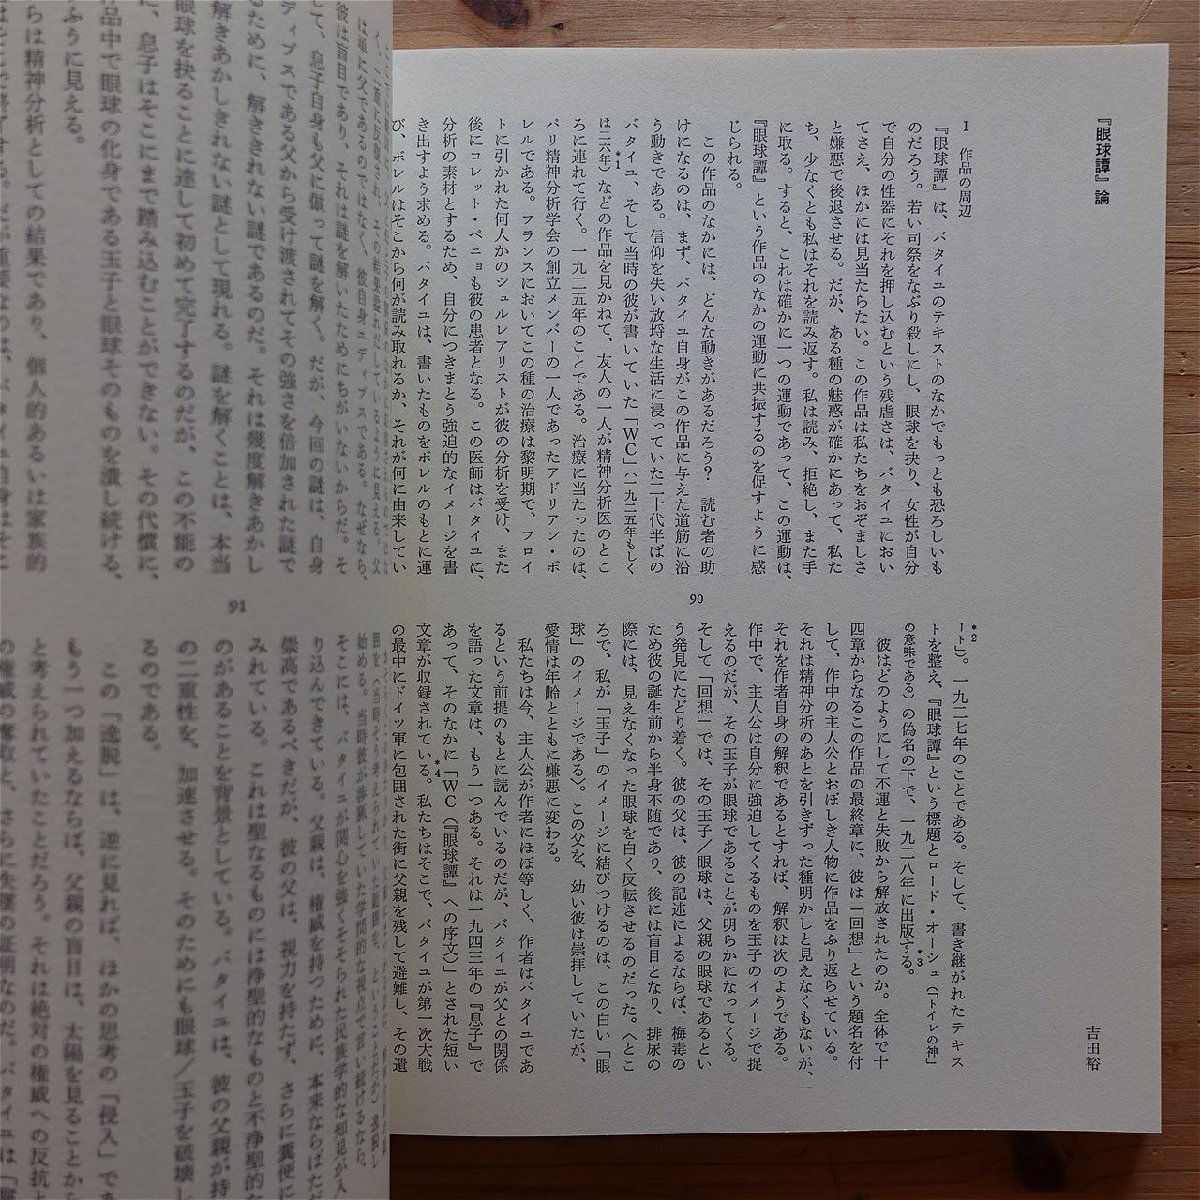 『眼球譚』論
吉田裕
1 作品の周辺
『眼球譚』は、バタイユのテキストのなかでもっとも恐ろしいも
のだろう。若い司祭をなぶり殺しにし、眼球を抉り、女性が自分
で自分の性器にそれを押し込むという残虐さは、バタイユにおい
てさえ、ほかには見当たらない。この作品は私たちをおぞましさ
と嫌悪で後退させる。だが、ある種の魅惑が確かにあって、私た
ち、少なくとも私はそれを読み返す。私は読み、拒絶し、また手
に取る。すると、これは確かに一つの運動であって、この運動は、
『眼球譚』という作品のなかの運動に共振するのを促すように感
じられる。
この作品のなかには、どんな動きがあるだろう? 読む者の助
けになるのは、まず、バタイユ自身がこの作品に与えた道筋に沿
う動きである。信仰を失い放埒な生活に浸っていた二十代半ばの
バタイユ、そして当時の彼が書いていた「WC」(一九二五年もしく
は二六年)などの作品を見かねて、友人の一人が精神分析医のとこ
*1
ろに連れて行く。一九二五年のことである。治療に当たったのは、
パリ精神分析学会の創立メンバーの一人であったアドリアン・ボ
レルである。フランスにおいてこの種の治療は黎明期で、フロイ
トに引かれた何人かのシュルレアリストが彼の分析を受け、また
後にコレット・ペニョも彼の患者となる。この医師はバタイユに、
分析の素材とするため、自分につきまとう強迫的なイメージを書
き出すよう求める。バタイユは、書いたものをボレルのもとに運
び、ボレルはそこから何が読み取れるか、それが何に由来してい
90
*2
ート」。一九二七年のことである。そして、書き継がれたテキス
トを整え、『眼球譚』という標題とロード・オーシュ(「トイレの神」
の意味である)の偽名の下で、一九二八年に出版する。
*3
彼はどのようにして不運と失敗から解放されたのか。全体で十
四章からなるこの作品の最終章に、彼は「回想」という題名を付
して、作中の主人公とおぼしき人物に作品をふり返らせている。
それは精神分析のあとを引きずった種明かしと見えなくもないが、
それを作者自身の解釈であるとすれば、解釈は次のようである。
作中で、主人公は自分に強迫してくるものを玉子のイメージで捉
えるのだが、その玉子が眼球であることが明らかになってくる。
そして「回想」では、その玉子/眼球は、父親の眼球であるとい
う発見にたどり着く。彼の父は、彼の記述によるならば、梅毒の
ため彼の誕生前から半身不随であり、後には盲目となり、排尿の
際には、見えなくなった眼球を白く反転させるのだった。〈とこ
ろで、私が「玉子」のイメージに結びつけるのは、この白い「眼
球」のイメージである〉。この父を、幼い彼は崇拝していたが、
愛情は年齢とともに嫌悪に変わる。
私たちは今、主人公が作者にほぼ等しく、作者はバタイユであ
るという前提のもとに読んでいるのだが、バタイユが父との関係
を語った文章は、もう一つある。それは一九四三年の『息子』で
あって、そのなかに「WC(『眼球譚』への序文)」とされた短い
文章が収録されている。私たちはそこで、バタイユが第一次大戦
*4
の最中にドイツ軍に包囲された街に父親を残して避難し、その遺
は単に父であるのではなく、彼自身エディプスである。なぜなら、
彼は盲目であり、それは謎を解いたためにちがいないからだ。そ
して、息子自身も父に倣って謎を解く。だが、今回の謎は、自身
ディプスである父から受け渡されてその強さを倍加された謎で
るために、解ききれない謎であるのだ。それは幾度解きあかし
解きあかしきれない謎として現れる。謎を解くことは、本当
眼球を抉ることに達して初めて完了するのだが、この不能の
に、息子はそこにまで踏み込むことができない。その代償に、
品中で眼球の化身である玉子と眼球そのものを潰し続ける、
ふうに見える。
らは精神分析としての結果であり、個人的あるいは家族的
91
始める。当時彼が渉猟していた学問的な視点で言い続けるなら、
そこには、バタイユが関心を強くそそられた民族学的な知見が入
り込んできている。父親は、権威を持つために、本来ならばただ
崇高であるべきだが、彼の父は、視力を持たず、さらに糞便に
みれている。これは聖なるものには浄聖的なものと不浄聖的な
のがあることを背景としている。バタイユは、彼の父親が持
の二重性を、加速させる。そのためにも眼球/玉子を破壊し
るのである。
この「逸脱」は、逆に見れば、ほかの思考の「侵入」であ
もう一つ加えるならば、父親の盲目は、太陽を見ることから
と考えられていたことだろう。それは絶対の権威への反抗と